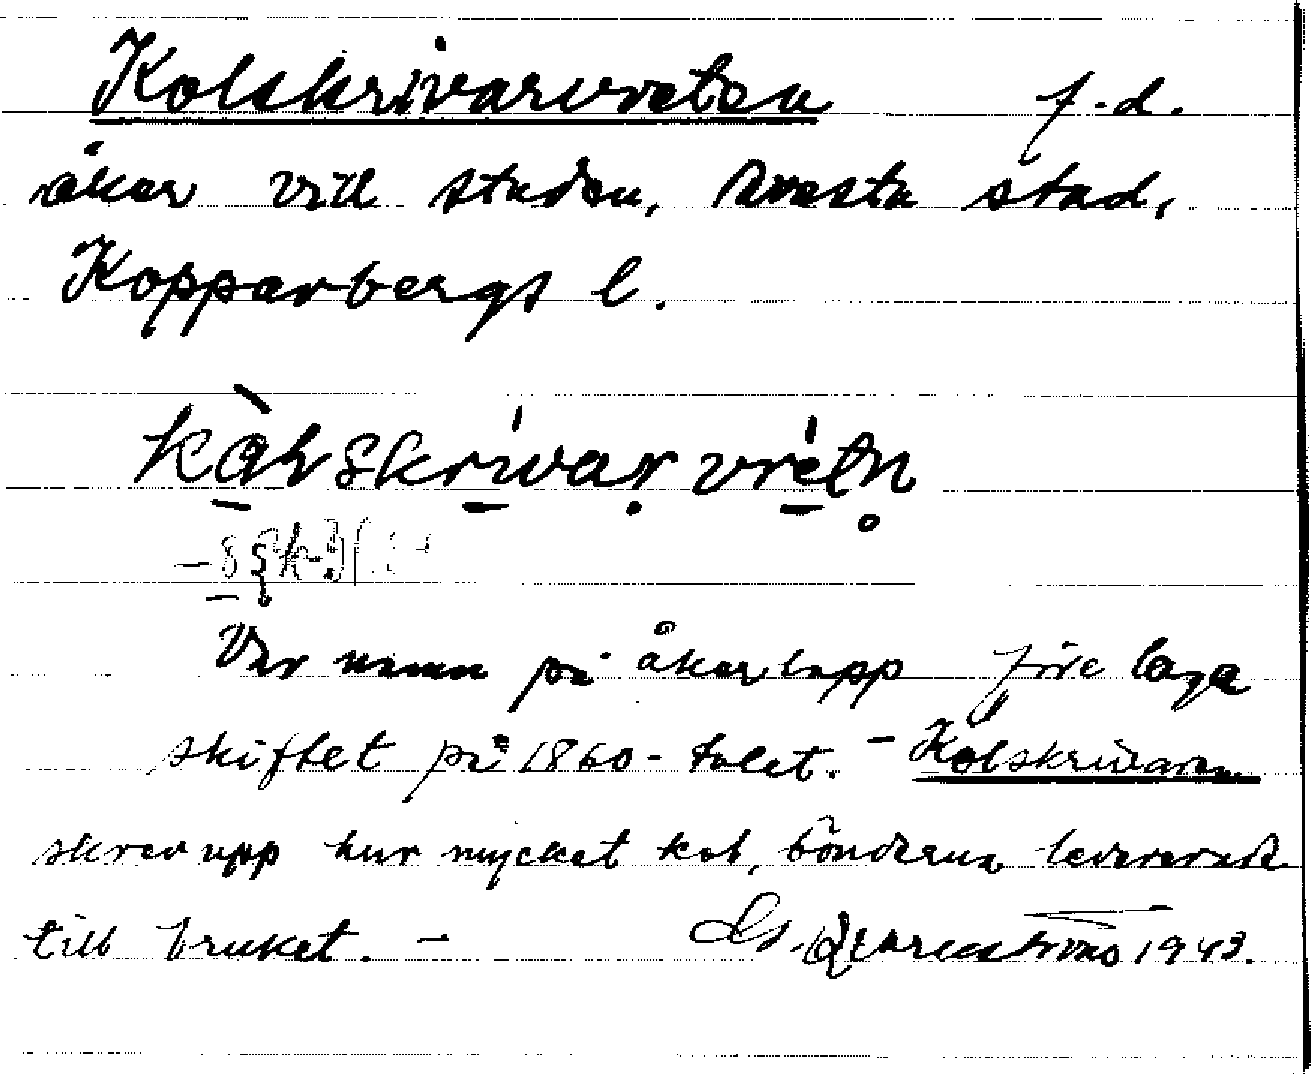 Kolskrivarvreten f.d.
åker vid staden, Avesta stad,
Kopparbergs l.
kàlskrívar vrétn
Var namn på åkerlapp före laga
skiftet på 1860-talet. - Kolskrivaren
skrev upp hur mycket kol, bönderna levererade
till bruket. - 1943.